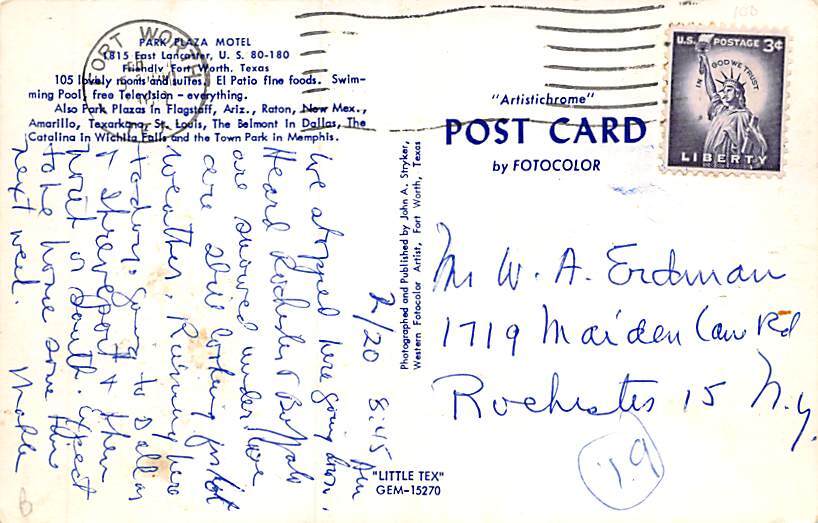 PARK PLAZA MOTEL
1815 East Lancaster, U. S. 80-180
Friendly Fort Worth, Texas
105 lovely rooms and suites. El Patio fine foods. Swim-
ming Pool, free Television - everything.
Also Park Plazas in Flagstaff, Ariz., Raton, New Mex.,
Amarillo, Texarkana, St. Louis, The Belmont in Dallas, The
Catalina in Wichita Falls and the Town Park in Memphis.
FORT WORTH
U.S. POSTAGE 3¢
IN GOD WE TRUST
LIBERTY
"Artistichrome"
POST CARD
by FOTOCOLOR
Photographed and Published by John A. Stryker,
Western Fotocolor Artist, Fort Worth, Texas
2/20 8:45 AM
We stopped here going down.
Heard Rochester & Buffalo
are snowed under. We
are still looking for hot
weather. Raining here
today. Going to Dallas
& Shreveport & then
south. Expect
to be home some time
next week.
Mr W. A. Erdman
1719 Maiden Lane Rd
Rochester 15 N.y.
"LITTLE TEX"
GEM-15270